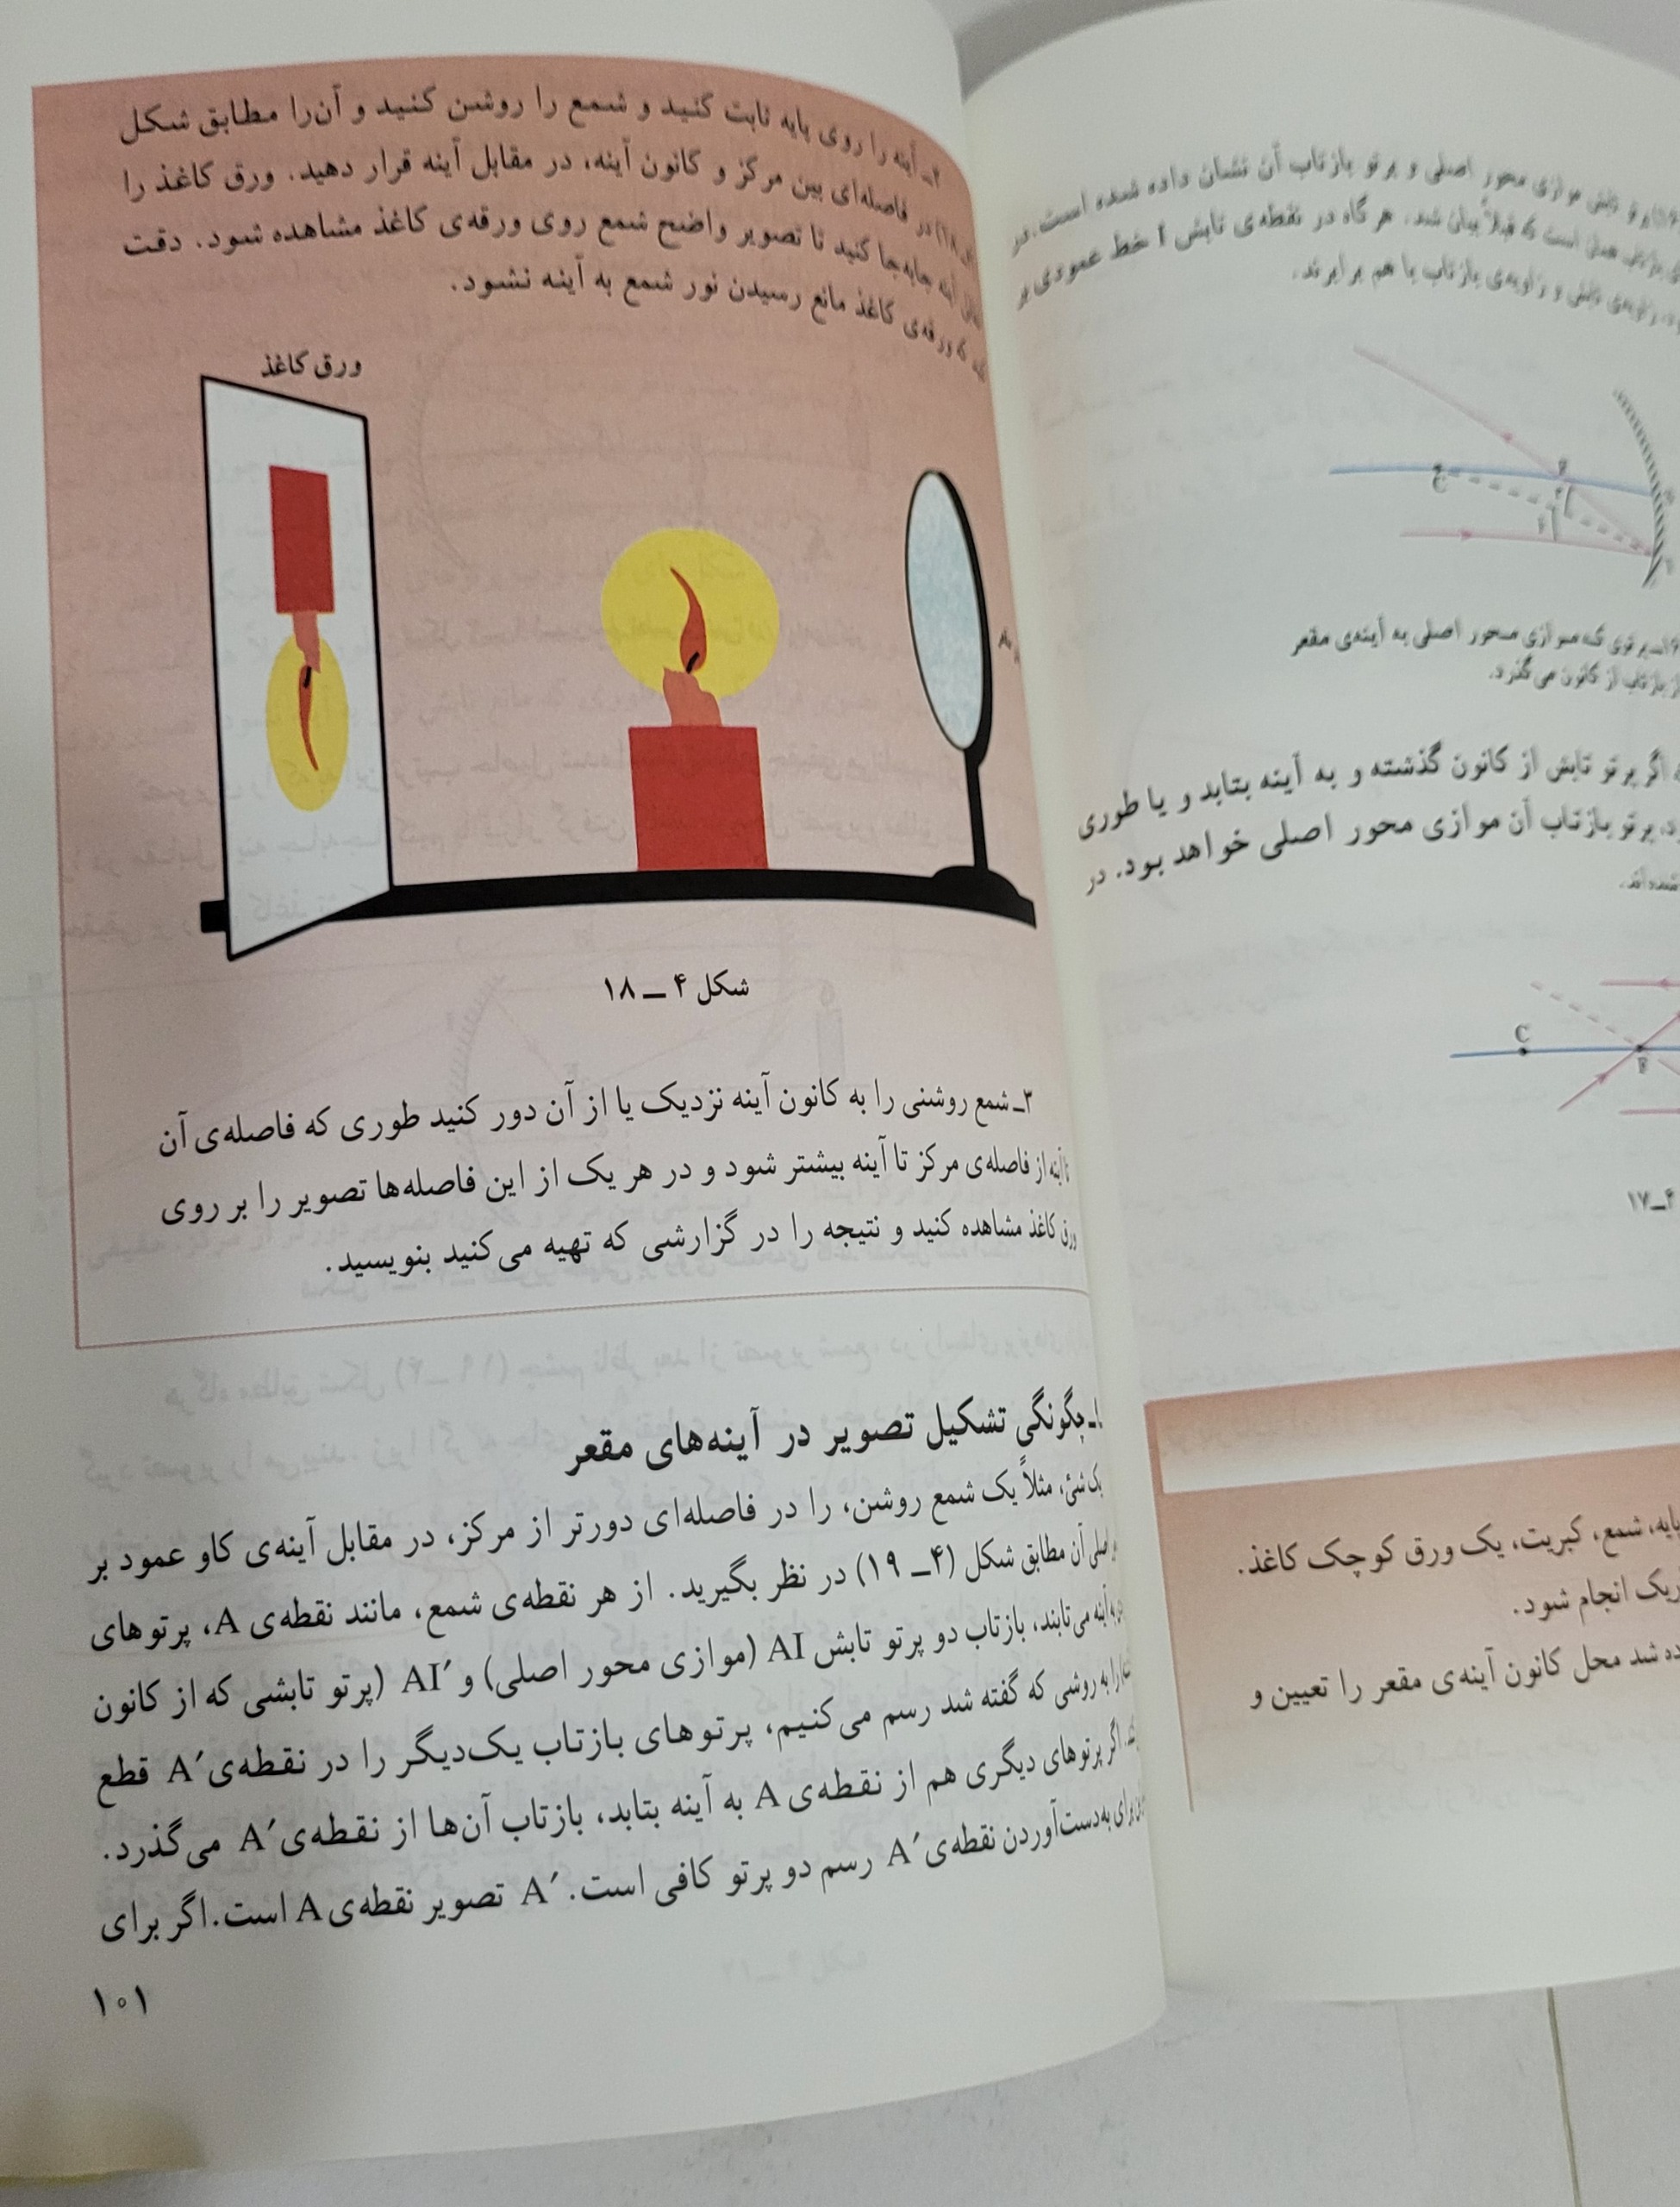 ۲ـ آینه را روی پایه ثابت کنید و شمع را روشن کنید و آن‌را مطابق شکل
(۴ـ۱۸) در فاصله‌ای بین مرکز و کانون آینه، در مقابل آینه قرار دهید. ورق کاغذ را
مقابل آینه جابه‌جا کنید تا تصویر واضح شمع روی ورقه‌ی کاغذ مشاهده شود. دقت
کنید که ورقه‌ی کاغذ مانع رسیدن نور شمع به آینه نشود.
ورق کاغذ
شکل ۴ ــ ۱۸
۳ـ شمع روشنی را به کانون آینه نزدیک یا از آن دور کنید طوری که فاصله‌ی آن
تا آینه از فاصله‌ی مرکز تا آینه بیشتر شود و در هر یک از این فاصله‌ها تصویر را بر روی
ورق کاغذ مشاهده کنید و نتیجه را در گزارشی که تهیه می‌کنید بنویسید.
چگونگی تشکیل تصویر در آینه‌های مقعر
یک شئ، مثلاً یک شمع روشن، را در فاصله‌ای دورتر از مرکز، در مقابل آینه‌ی کاو عمود بر
اصلی آن مطابق شکل (۴ــ ۱۹) در نظر بگیرید. از هر نقطه‌ی شمع، مانند نقطه‌ی A، پرتوهای
به آینه می‌تابند، بازتاب دو پرتو تابش AI (موازی محور اصلی) و AI′ (پرتو تابشی که از کانون
را به روشی که گفته شد رسم می‌کنیم، پرتوهای بازتاب یک‌دیگر را در نقطه‌ی A′ قطع
اگر پرتوهای دیگری هم از نقطه‌ی A به آینه بتابد، بازتاب آن‌ها از نقطه‌ی A′ می‌گذرد.
برای به‌دست‌آوردن نقطه‌ی A′ رسم دو پرتو کافی است. A′ تصویر نقطه‌ی A است. اگر برای
۱۰۱
تابش موازی محور اصلی و پرتو بازتاب آن نشان داده شده است. در
است که قبلاً بیان شد. هر گاه در نقطه‌ی تابش I خط عمودی بر
زاویه‌ی تابش و زاویه‌ی بازتاب با هم برابرند.
C
F
پرتوی که موازی محور اصلی به آینه‌ی مقعر
بازتاب از کانون می‌گذرد.
اگر پرتو تابش از کانون گذشته و به آینه بتابد و یا طوری
پرتو بازتاب آن موازی محور اصلی خواهد بود. در
شده‌اند.
C
F
۴ــ۱۷
پایه، شمع، کبریت، یک ورق کوچک کاغذ.
انجام شود.
شد محل کانون آینه‌ی مقعر را تعیین و